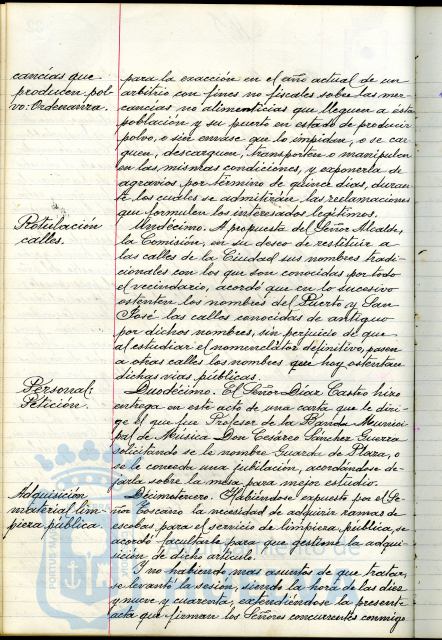 cancías que
producen pol-
vo. Ordenanza.
para la exacción en el año actual de un
arbitrio con fines no fiscales sobre las mer-
cancías no alimenticias que lleguen a esta
población y su puerto en estado de producir
polvo, o sin envase que lo impidan, o se car-
guen, descarguen, transporten o manipulen
en las mismas condiciones, y exponerla de
agravios por término de quince días, duran-
te los cuales se admitirán las reclamaciones
que formulen los interesados legítimos.
Rotulación
calles.
Undécimo. A propuesta del Señor Alcalde,
la Comisión, en su deseo de restituir a
las calles de la Ciudad sus nombres tradi-
cionales con los que son conocidas por todo
el vecindario, acordó que en lo sucesivo
ostenten los nombres del Puerto y San
José las calles conocidas de antiguo
por dichos nombres, sin perjuicio de que
al estudiar el nomenclátor definitivo, pasen
a otras calles los nombres que hoy ostentan
dichas vías públicas.
Personal.
Petición.
Duodécimo. El Señor Díaz Castro hizo
entrega en este acto de una carta que le diri-
ge el que fué Profesor de la Banda Munici-
pal de Música Don Cesáreo Sánchez Guerra
solicitando se le nombre Guarda de Plaza, o
se le conceda una jubilación, acordándose de-
jarla sobre la mesa para mejor estudio.
Adquisición
material lim-
pieza pública.
Décimotercero. Habiéndose expuesto por el Se-
ñor Toscano la necesidad de adquirir ramas de
escobas para el servicio de limpieza pública, se
acordó facultarle para que gestione la adqui-
sición de dicho artículo.
Y no habiendo mas asuntos de que tratar,
se levantó la sesión, siendo la hora de las diez
y nueve y cuarenta, extendiéndose la presente
acta que firman los Señores concurrentes conmigo